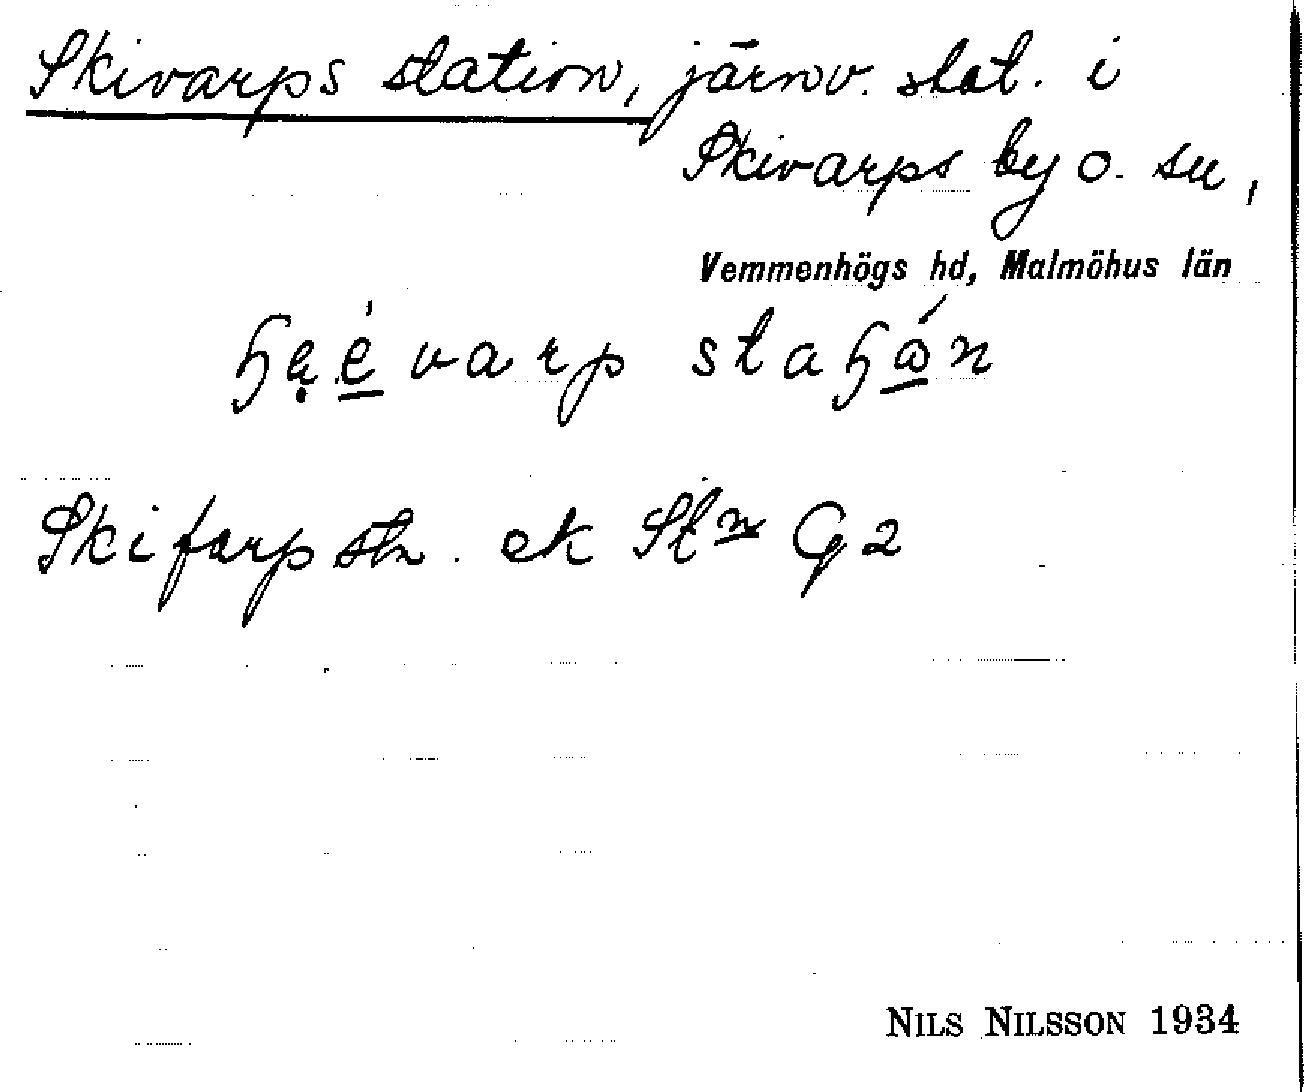 Skivarps station, järnv. stat. i
Skivarps by o. sn,
Vemmenhögs hd, Malmöhus län
ɧẹé̱varp staɧώ̱n
Skifarp stn. ek Stn G2
NILS NILSSON 1934